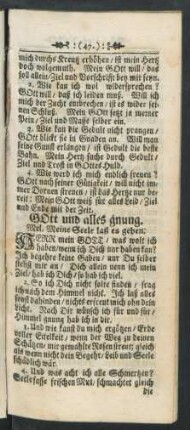 (47.)
mich durchs Creutz erhöhen / ist mein Hertz
doch wolgemuth. Mein GOtt will / das
soll allein / Ziel und Vorschrifft bey mir seyn.
3. Wie kan ich wol widersprechen?
GOtt will / daß ich leiden muß. Will ich
mich der Zucht entbrechen / ist es wider sei-
nen Schluß. Mein GOtt setzt ja meiner
Pein / Ziel und Masse selber ein.
2. Wie kan die Gedult nicht prangen /
GOtt blickt sie in Gnaden an. Will man
seine Gunst erlangen / ist Gedult die beste
Bahn. Mein Hertz suche durch Gedult /
Ziel und Trost in Gottes Huld.
4. Wie werd ich mich endlich freuen?
GOtt nach seiner Gütigkeit / will nicht im-
mer Dornen streuen / ist das Hertz nur be-
reit / Mein GOtt weiß für alles Leid / Ziel
und Ende mit der Zeit.
GOtt und alles gnung.
Mel. Meine Seele laß es gehen.
HERR mein GOTT / was wolt ich
haben / wenn ich Dich nur haben kan?
Ich begehre keine Gaben / nur Du selber
stehst mir an / Dich allein wenn ich mein
Ziel / hab ich Dich / so hab ich viel.
2. So ich Dich nicht solte finden / frag
ich nach dem Himmel nicht. Ich laß alles
sonst dahinden / nichts erfreut mich ohn dein
Licht. Nach Dir wünsch ich für und für /
Himmel gnung hab ich in dir.
3. Und wie kanst du mich ergötzen / Erde
voller Eitelkeit / wenn der Weg zu deinen
Schätzen / mir gewahlte Rosen streut / gleich
als wenn nicht dein Begehr / Leib und Seele
schädlich wär.
4. Und was acht ich alle Schmertzen?
Seelesafft frischen Mut / schmachtet gleich
die